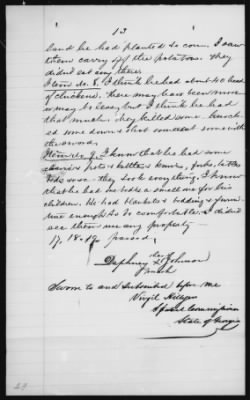 13
land he had planted to corn. I saw
them carry off the potatoes. They
didn't eat any there.
Item No. 8. I think he had about 40 head
of chickens. There may have been more
or may be less, but I think he had
that much. They killed some, knocked
ed some down & shot some & eat some with
the swords.
Item No. 9. I know that he had some
pots & kettles & knives, forks, &
&c &c — they took everything. I know
that he had on beds a small one for his
children. He had blankets & bedding & furni-
ture enough to do comfortable. I didn't
see them use any property —
17. 18. 19. passed,
Daphney her X Johnson
mark
Sworn to and subscribed before me
Virgil Hillyer
Special Commissioner
State of Georgia